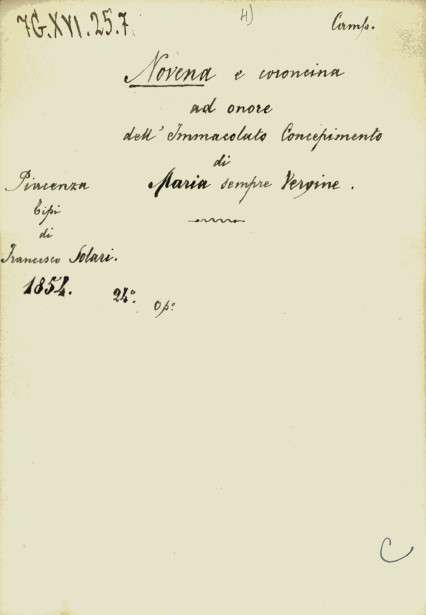 7G.XVI.25.7.
4)
Camp.
Novena e coroncina
ad onore
dell' Immacolato Concepimento
di
Maria sempre Vergine.
Piacenza
Tipi
di
Francesco Solari.
1854.
24°.
Op°
C